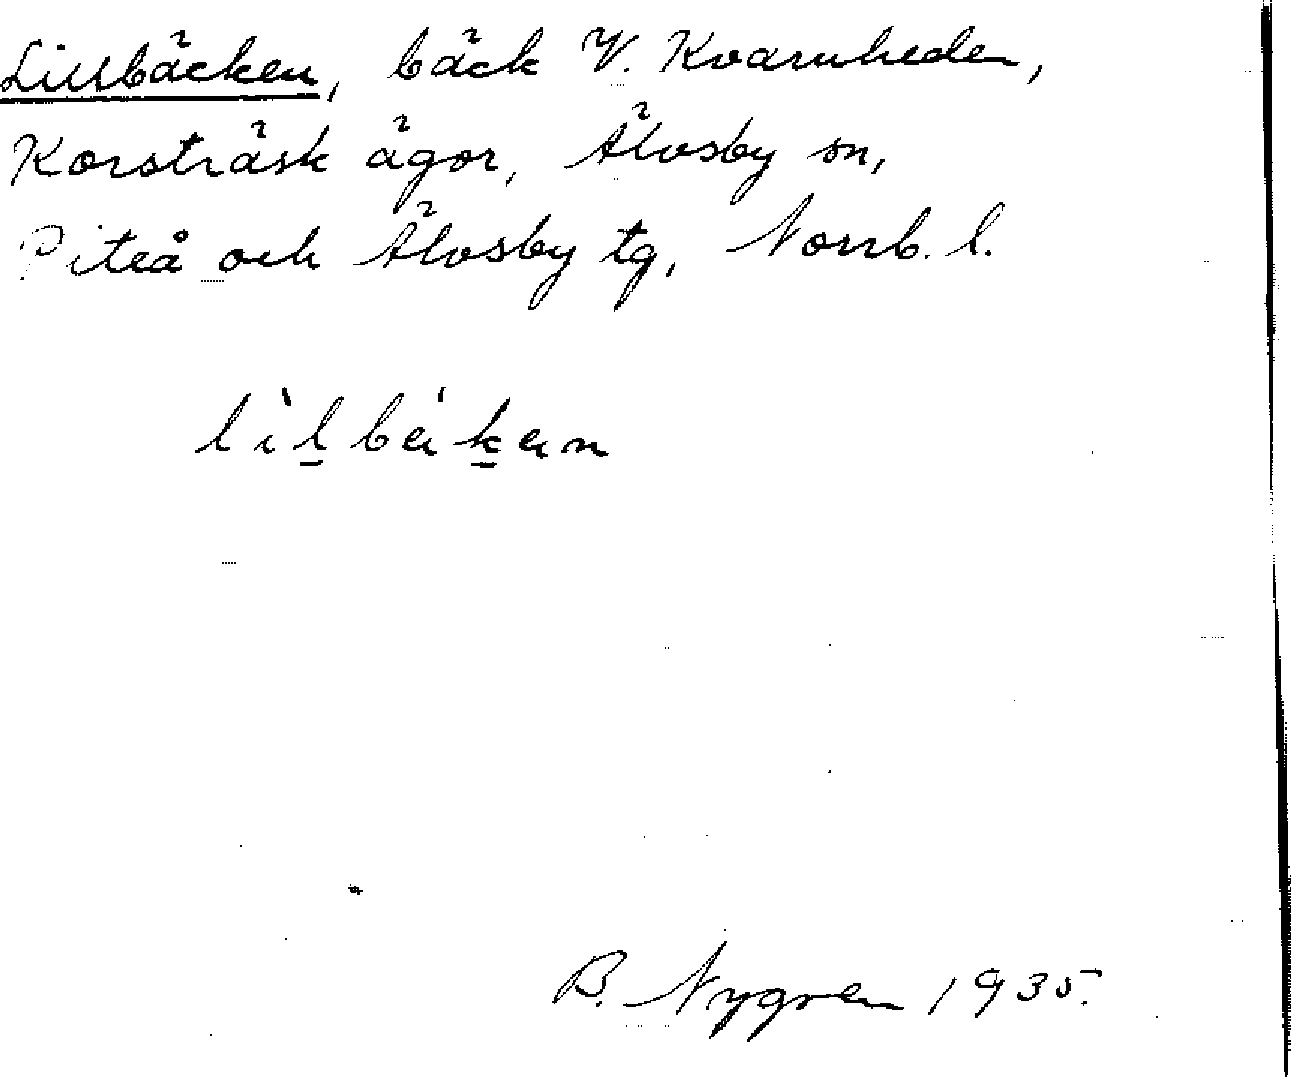 Lillbäcken, bäck V. Kvarnheden,
Korsträsk ägor, Älvsby sn,
Piteå och Älvsby tg, Norrb. l.
lìl̠bä́k̠än
B. Nygren 1935.